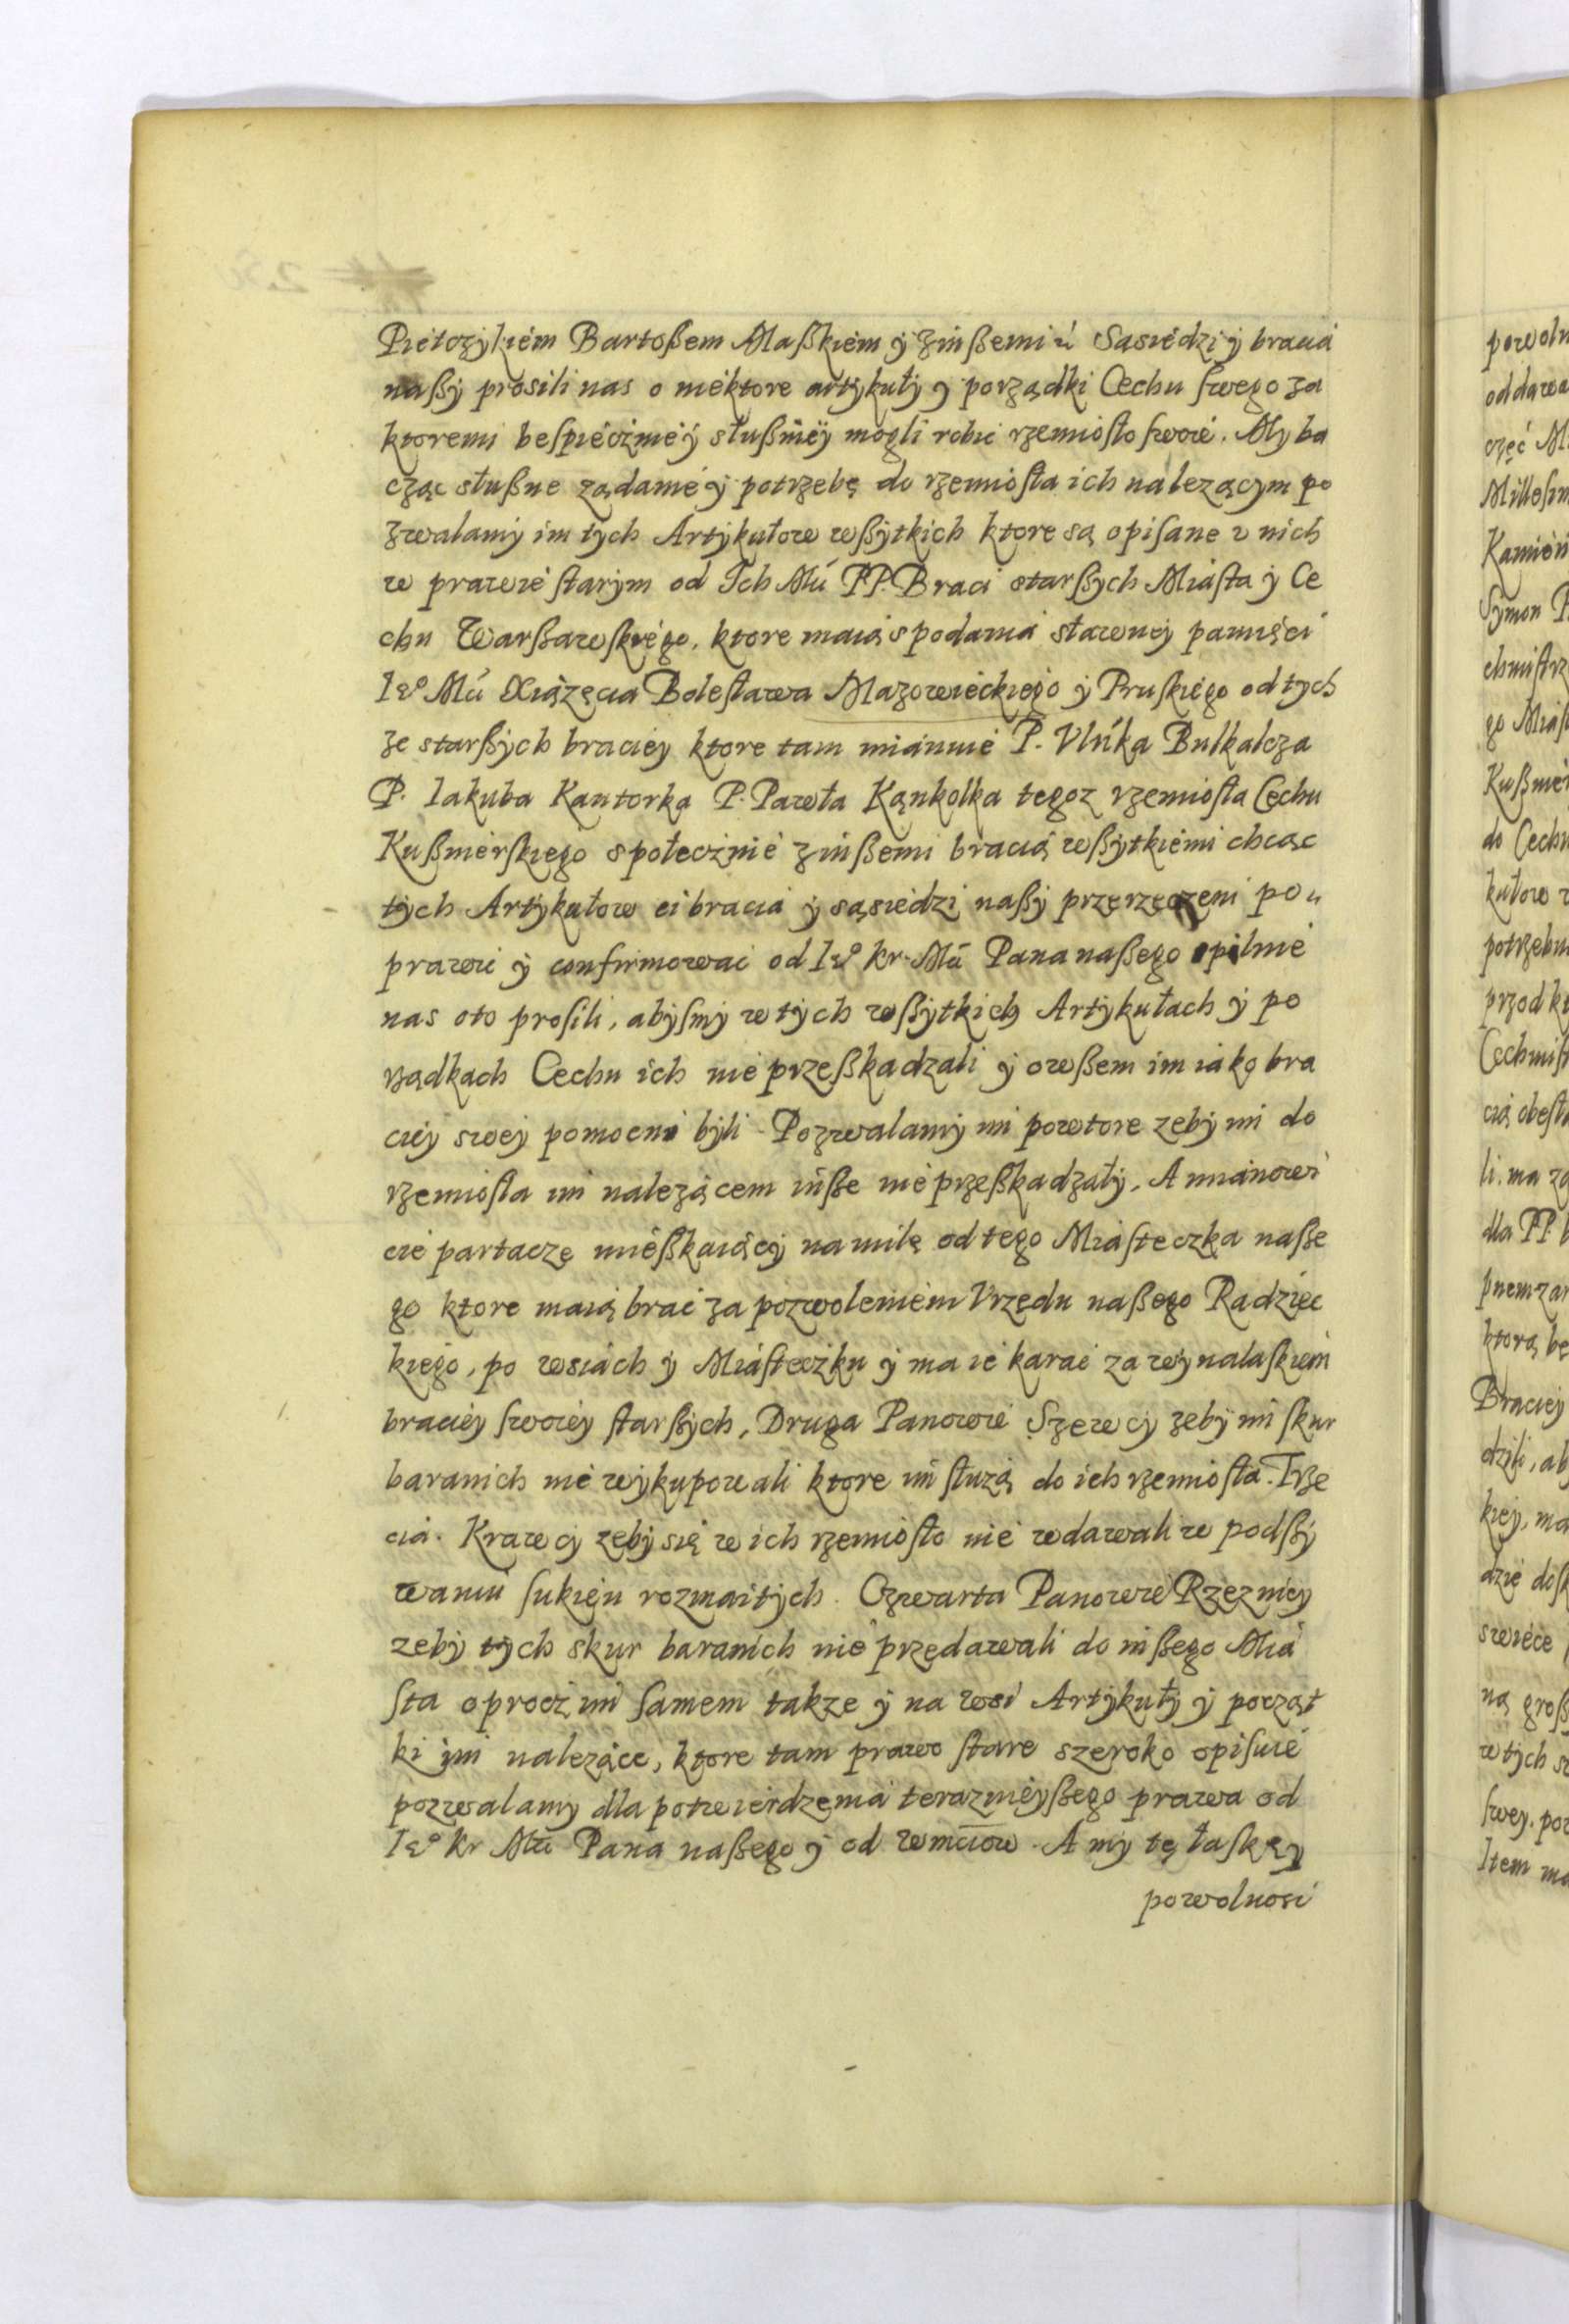 Pietczykiem Bartoßem Maßkiem ÿ zinßemi Sąsiedzi ÿ bracia
naßÿ prosili nas o niektore artÿkułÿ ÿ porządki Cechu swego za
ktoremi bespiecznieÿ słußnieÿ mogli robic rzemiosło swoie. Mÿ ba
cząc słußne ządanie ÿ potrzebę do rzemiosła ich nalezącym po
zwalamÿ im tÿch Artÿkułow wßÿtkich ktore są opisane v nich
w prawie starÿm od Ich Mći PP. Braci starßÿch Miasta ÿ Ce
chu Warßawskiego, ktore maią s podania sławneÿ pamięci
Ie⁰ Mći Xiązęcia Bolesława Mazowieckiego ÿ Pruskiego od tych
ze starßÿch bracieÿ ktore tam mianuie P. Vlrika Bulkalcza
P. Iakuba Kantorka P. Pawła Kąnkolka tegoz rzemiosła Cechu
Kußnierskiego społecznie zinßemi bracią wßÿtkiemi chcąc
tÿch Artÿkułow ci bracia ÿ sąsiedzi naßÿ przerzeczeni po
prawic ÿ confirmowac od Ie⁰ Kr. Mći Pana naßego pilnie
nas oto prosili, abÿsmÿ w tÿch wßÿtkich Artÿkułach ÿ po
rządkach Cechu ich nie przeßkadzali ÿ owßem im iako bra
cieÿ sweÿ pomocni bÿli. Pozwalamÿ im powtore zebÿ im do
rzemiosła im nalezącem inße nie przeßkadzałÿ. A mianowi
cie partacze mießkaiącÿ na milę od tego Miasteczka naße
go ktore maią brac za pozwoleniem Vrzędu naßego Radziec
kiego, po wsiach ÿ Miasteczku ÿ ma ie karac za wÿnalaskiem
bracieÿ swoieÿ starßÿch, Druga Panowie Szewcÿ zebÿ im skur
baranich nie wÿkupowali ktore im służą do ich rzemiosła. Trze
cia. Krawcÿ zebÿ się w ich rzemiosło nie wdawali w podßÿ
waniu sukien rozmaitÿch. Czwarta Panowie Rzeznicÿ
zebÿ tÿch skur baranich nie przedawali do inßego Mia
sta oprocz im samem takze ÿ na wsi Artÿkułÿ ÿ począt
ki im nalezące, ktore tam prawo stare szeroko opisuie
pozwalamy dla potwierdzenia teraznieÿßego prawa od
Ie⁰ Kr Mći Pana naßego ÿ od Wmciow. A mÿ tę łaskę ÿ
powolnosć